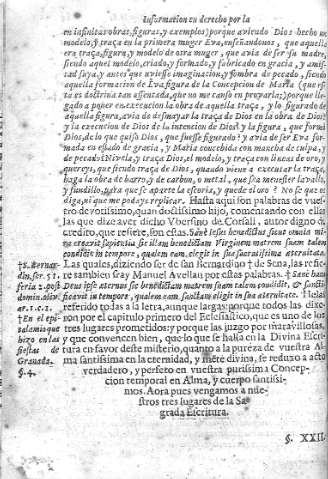 Information en derecho por la
en infinitas obras, figuras, y exemplos) porque aviendo Dios hecho un
modelo, y traça en la primera muger Eva, enseñandonos, que aquella
era traça, figura, y modelo de otra muger, que avia de ser su madre,
siendo aquel modelo, criado, y formado, y fabricado en gracia, y amis-
tad suya, y antes que uviesse imaginacion, y sombra de pecado, siendo
aquella formacion de Eva, figura de la Concepcion de Maria (que es-
ta es doctrina tan assentada, que no me canso en provarla;) porque lle-
gado a poner en execucion la obra de aquella traça, y lo figurado de
aquella figura, avia de desmayar la traça de Dios en la obra de Dios?
y la execucion de Dios de la intencion de Dios? y la figura, que formò
Dios, de lo que quiso Dios, que fuesse figurado? y avia de ser Eva for-
mada en estado de gracia, y Maria concebida con mancha de culpa, y
de pecado? Nivela, y traça Dios, el modelo, y traça con lineas de oro, y
quereys, que siendo traça de Dios, quando viene a executar la traça,
haga la obra de barro, y de carbon, y metal, que sea menester lavallo,
y fundillo, para que se aparte la escoria, y quede el oro? No se que os
diga, ni que me podays replicar. Hasta aqui son palabras de vues-
tro devotissimo, quan doctissimo hijo, comentando con ellas
las que dize aver dicho Vbertino de Corsali, autor digno de
credito, que refiere, son estas. Sanè Iesus benedictus sicut omnia mi-
na creavit sapientia sic illam benedictam Virginem matrem suam talem
condidit in tempore, qualem eam elegit in sua sacratissima aeternitate.
† S. Bernar- Las quales, diziendo ser de san Bernardino † de Sena, las refie-
din. ser. 51. re tambien fray Manuel Avellan por estas palabras. † Sanè bene
feria 2. pos. Deus ipse aeternus sic benedictam matrem suam talem condidit, & sancti-
domin. olivi. ficavit in tempore, qualem eam sanctam elegit in sua aeternitate. Helas
ar. 1. c. 1. referido todas a la letra, aunque largas: porque todas las dixe-
† En el epi- ron por el capitulo primero del Eclesiastico, que es uno de los
talamio que tres lugares prometidos: y porque las juzgo por maravillosas,
hizo en las y que convencen bien, que lo que se halla en la Divina Escri-
fiestas de tura en favor deste misterio, quanto a la pureza de vuestra Al-
Granada. ma santissima en la eternidad, y mente divina, se reduxo a acto
§. 4. verdadero, y perfeto en vuestra purissima Concep-
cion temporal en Alma, y cuerpo santissi-
mos. Aora pues vengamos a nues-
tros tres lugares de la Sa-
grada Escritura.
§. XXII.